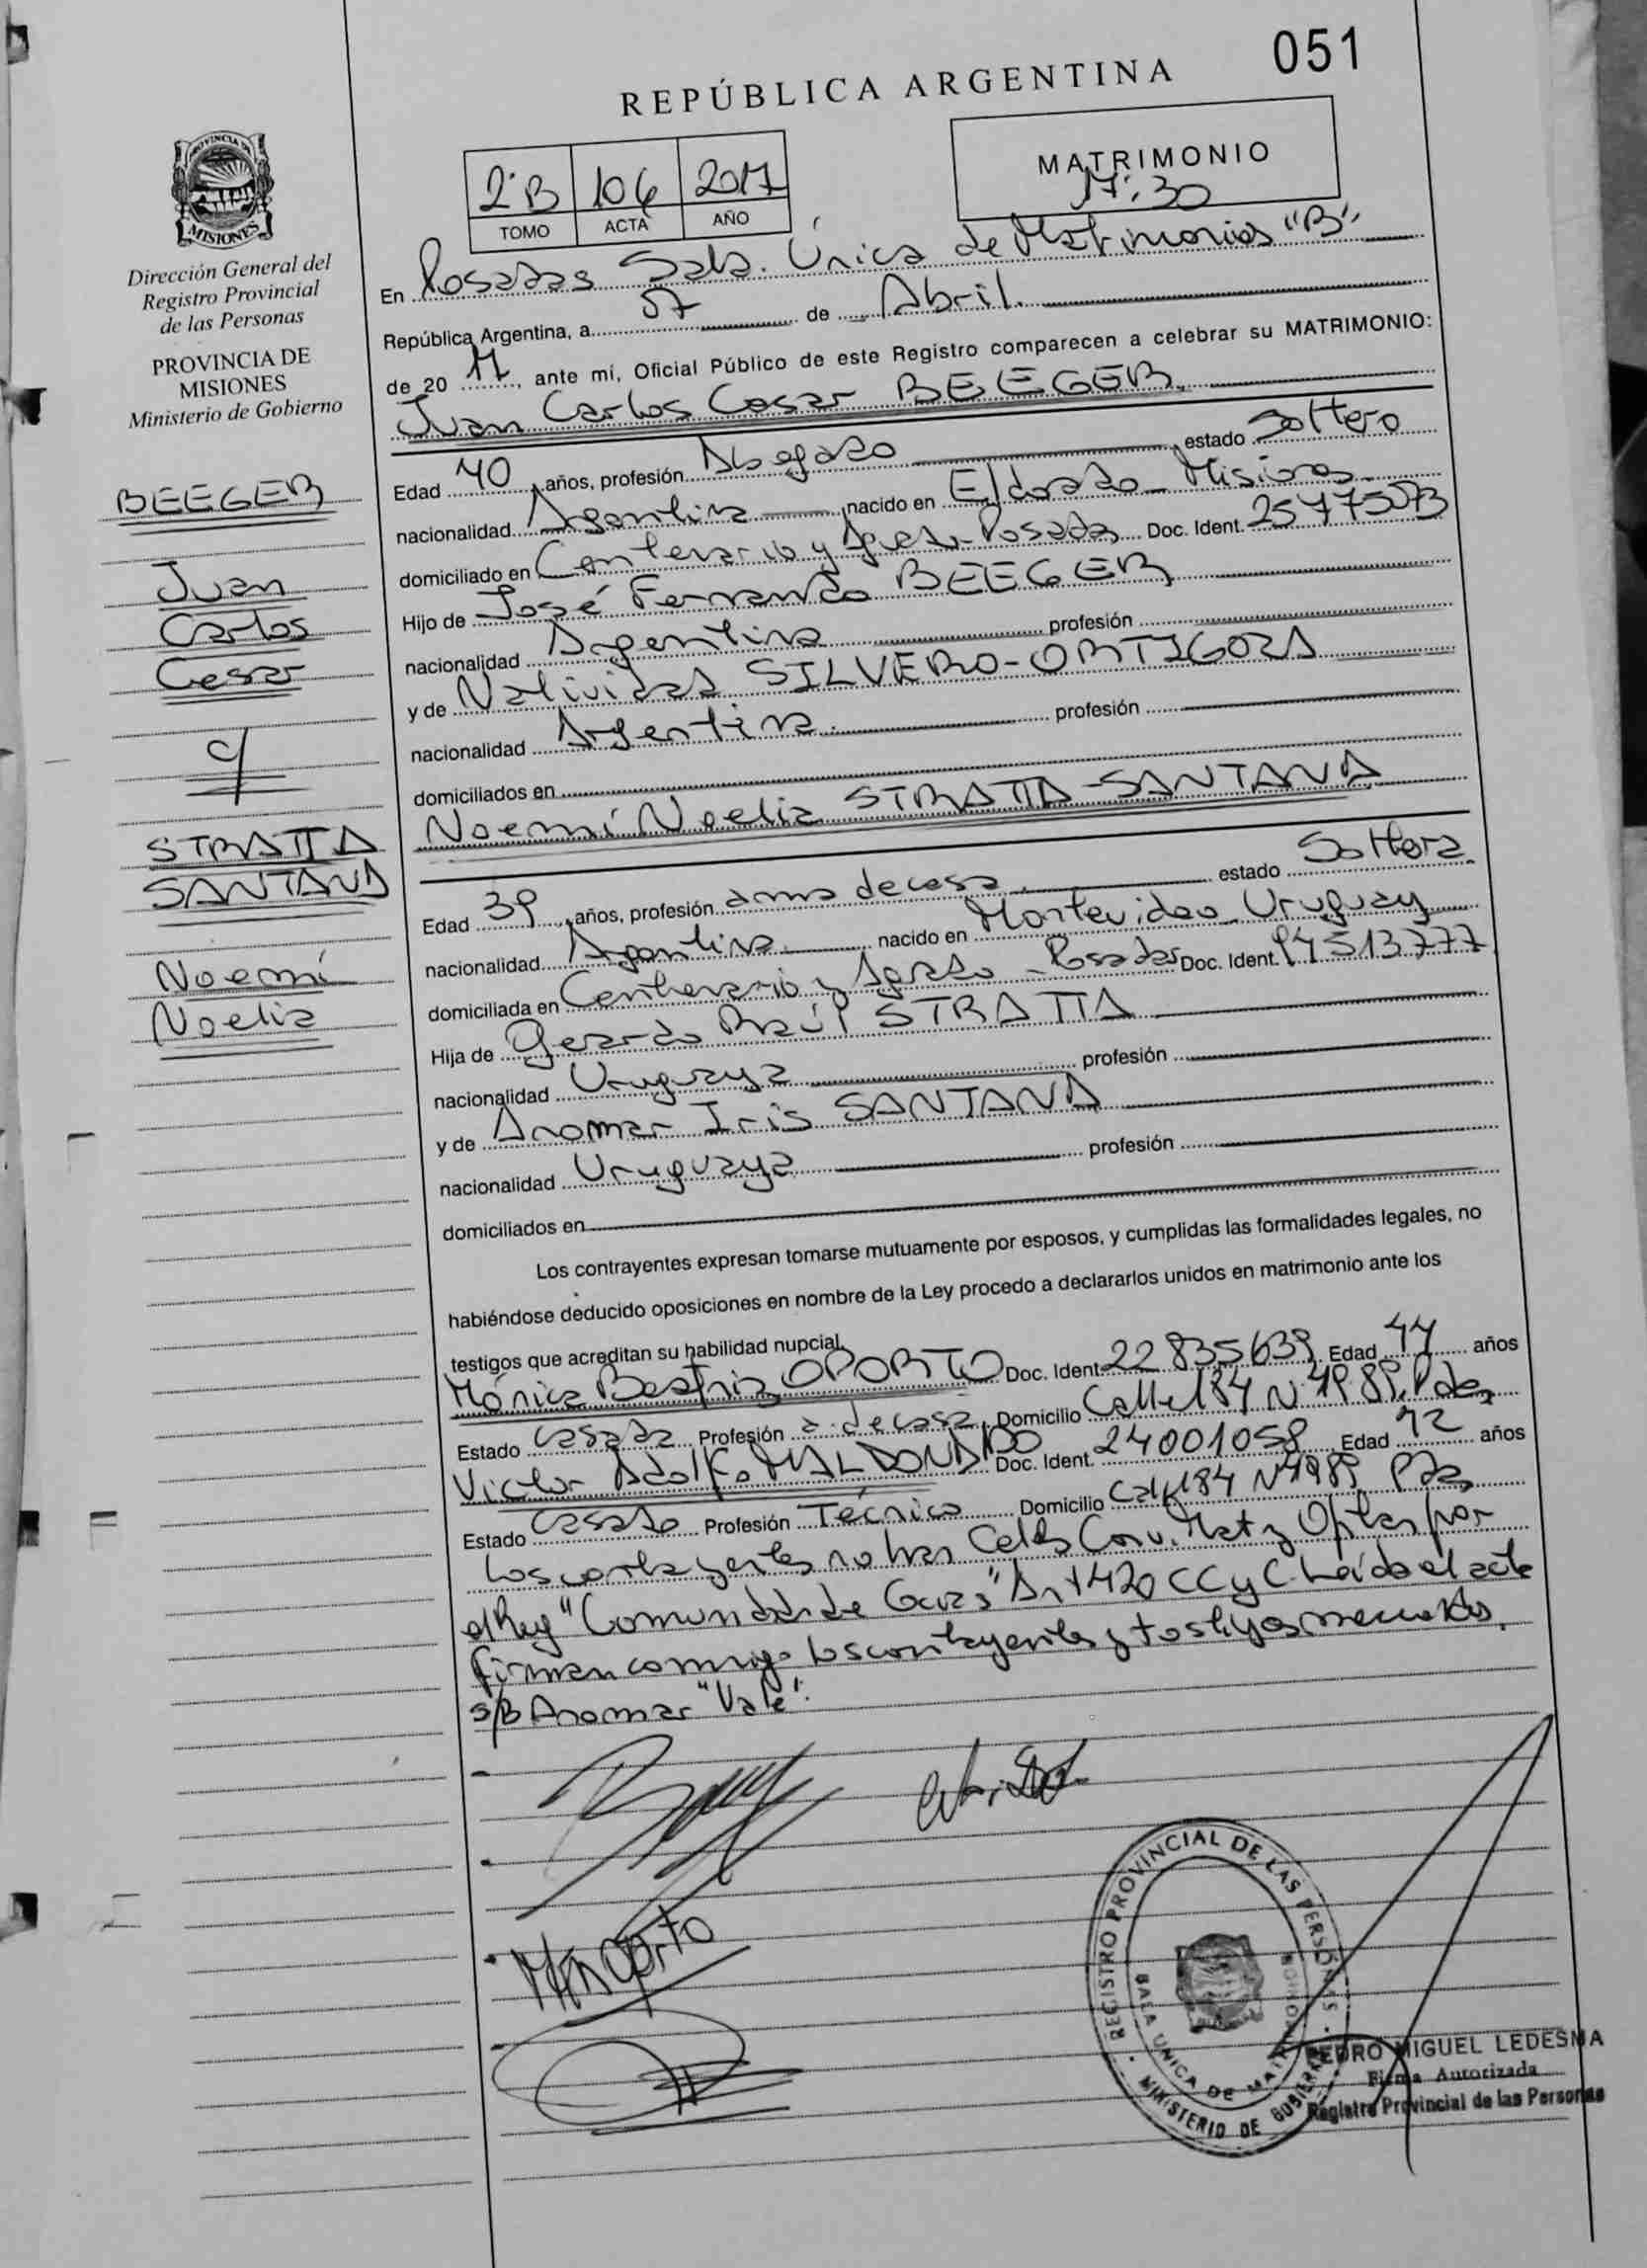 051
REPÚBLICA ARGENTINA
PROVINCIA DE
MISIONES
Dirección General del
Registro Provincial
de las Personas
PROVINCIA DE
MISIONES
Ministerio de Gobierno
2°B 106 2017
TOMO ACTA AÑO
MATRIMONIO
17:30
En Posadas Sala. Única de Matrimonios "B"
República Argentina, a 07 de Abril.
de 20 17, ante mí, Oficial Público de este Registro comparecen a celebrar su MATRIMONIO:
Juan Carlos Cesar BEEGER.
Edad 40 años, profesión Abogado estado Soltero
nacionalidad Argentina nacido en Eldorado - Misiones
domiciliado en Centenario y Posadas Doc. Ident. 25475073
Hijo de José Fernando BEEGER
nacionalidad Argentina profesión
y de Natividad SILVERO-ORTIGOZA
nacionalidad Argentina profesión
domiciliados en
Noemí Noelia STRATTA-SANTANA
Edad 39 años, profesión ama de casa. estado Soltera
nacionalidad Argentina nacido en Montevideo - Uruguay
domiciliada en Centenario y - Posadas Doc. Ident. 94513777
Hija de Gerardo Raúl STRATTA
nacionalidad Uruguaya profesión
y de Anomar Iris SANTANA
nacionalidad Uruguaya profesión
domiciliados en
Los contrayentes expresan tomarse mutuamente por esposos, y cumplidas las formalidades legales, no
habiéndose deducido oposiciones en nombre de la Ley procedo a declararlos unidos en matrimonio ante los
testigos que acreditan su habilidad nupcial.
Mónica Beatriz OPORTO Doc. Ident. 22835639 Edad 44 años
Estado casada Profesión a. de casa. Domicilio Calle 184 N° 4989. Pdas
Victor Adolfo MALDONADO Doc. Ident. 24001058 Edad 42 años
Estado casado Profesión Técnico Domicilio Calle 184 N° 4989 Pdas
Los contrayentes no han Celeb Conv. Mat y Optan por
el Reg "Comunidad de Gcias" Art 420 CC y C. Leída el acta
firman conmigo los contrayentes y testigos mencionados.
s/B Anomar "Vale".
BEEGER
Juan
Carlos
Cesar
c/
STRATTA
SANTANA
Noemí
Noelia
REGISTRO PROVINCIAL DE LAS PERSONAS
MINISTERIO DE GOBIERNO
SALA UNICA DE
PEDRO MIGUEL LEDESMA
Firma Autorizada
Registro Provincial de las Personas